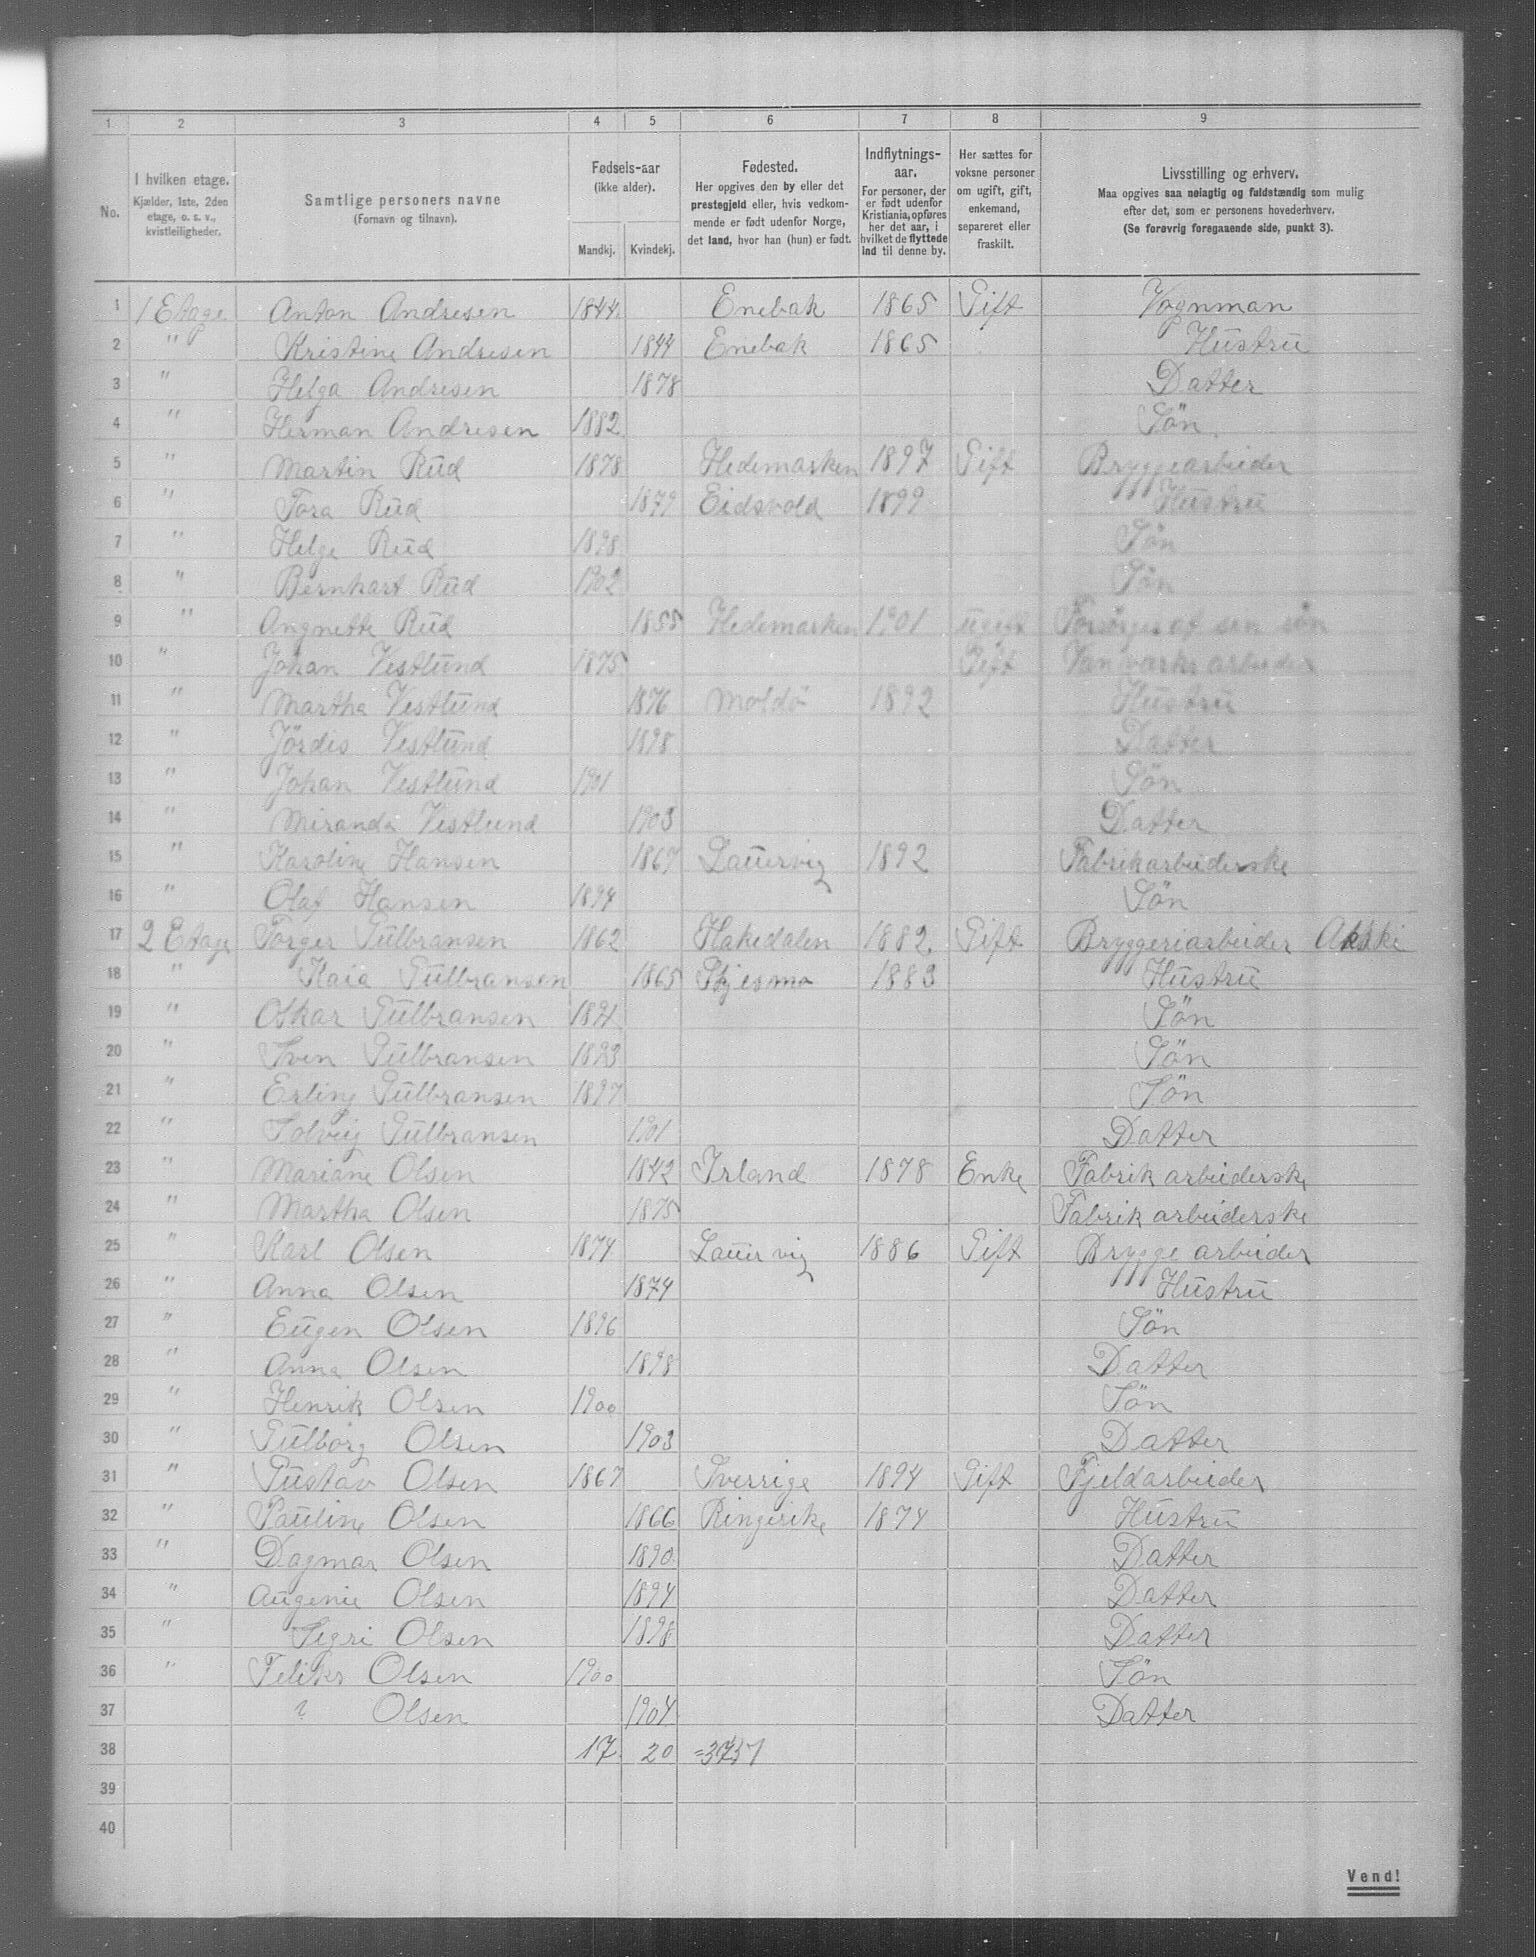 1 2 3 4 5 6 7 8 9
No.
I hvilken etage.
Kjælder, 1ste, 2den
etage, o. s. v.,
kvistleiligheder.
Samtlige personers navne
(Fornavn og tilnavn).
Fødsels-aar
(ikke alder).
Mandkj. Kvindekj.
Fødested.
Her opgives den by eller det
prestegjeld eller, hvis vedkom-
mende er født udenfor Norge,
det land, hvor han (hun) er født.
Indflytnings-
aar.
For personer, der
er født udenfor
Kristiania, opføres
her det aar, i
hvilket de flyttede
ind til denne by.
Her sættes for
voksne personer
om ugift, gift,
enkemand,
separeret eller
fraskilt.
Livsstilling og erhverv.
Maa opgives saa nøiagtig og fuldstændig som mulig
efter det, som er personens hovederhverv.
(Se forøvrig foregaaende side, punkt 3).
1 1 Etage Anton Andresen 1844 Enebak 1865 Gift Vognman
2 " Kristine Andresen 1844 Enebak 1865 Hustru
3 " Helga Andresen 1878 Datter
4 " Herman Andresen 1882 Sön
5 " Martin Rud 1878 Hedemarken 1897 Gift Bryggearbeider
6 " Tora Rud 1879 Eidsvold 1899 Hustru
7 " Helge Rud 1898 Sön
8 " Bernhart Rud 1902 Sön
9 " Angnette Rud 1855 Hedemarken 1901 ugift Forsörges af sen sön
10 " Johan Vestlund 1875 Gift Vanværks arbeider
11 " Martha Vestlund 1876 Moldö 1892 Hustru
12 " Jördis Vestlund 1898 Datter
13 " Johan Vestlund 1901 Sön
14 " Miranda Vestlund 1903 Datter
15 " Karoline Hansen 1867 Laurvig 1892 Fabrikarbeiderske
16 " Olaf Hansen 1894 Sön
17 2 Etage Torger Gulbransen 1862 Hakedalen 1882 Gift Bryggeriarbeider
18 " Kaia Gulbransen 1865 Skjesmo 1883 Hustru
19 " Oskar Gulbransen 1891 Sön
20 " Sven Gulbransen 1893 Sön
21 " Erling Gulbransen 1897 Sön
22 " Solveig Gulbransen 1901 Datter
23 " Mariane Olsen 1842 Irland 1878 Enke Fabrik arbeiderske
24 " Martha Olsen 1875 Fabrik arbeiderske
25 " Karl Olsen 1874 Lauervig 1886 Gift Brygge arbeider
26 " Anna Olsen 1874 Hustru
27 " Eugen Olsen 1896 Sön
28 " Anna Olsen 1898 Datter
29 " Henrik Olsen 1900 Sön
30 " Gulborg Olsen 1903 Datter
31 " Gustav Olsen 1867 Sverrige 1894 Gift Fjeldarbeider
32 " Pauline Olsen 1866 Ringerike 1874 Hustru
33 " Dagmar Olsen 1890 Datter
34 " Augenie Olsen 1894 Datter
35 " Sigri Olsen 1898 Datter
36 " Feliks Olsen 1900 Sön
37 ? Olsen 1904 Datter
38 17 20
39
40
Vend!